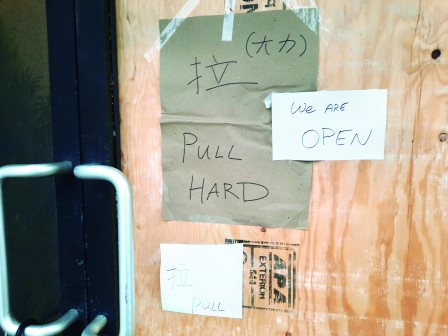 (大力)
拉
PULL
HARD
WE ARE
OPEN
拉
PULL
APA
EXTERIOR